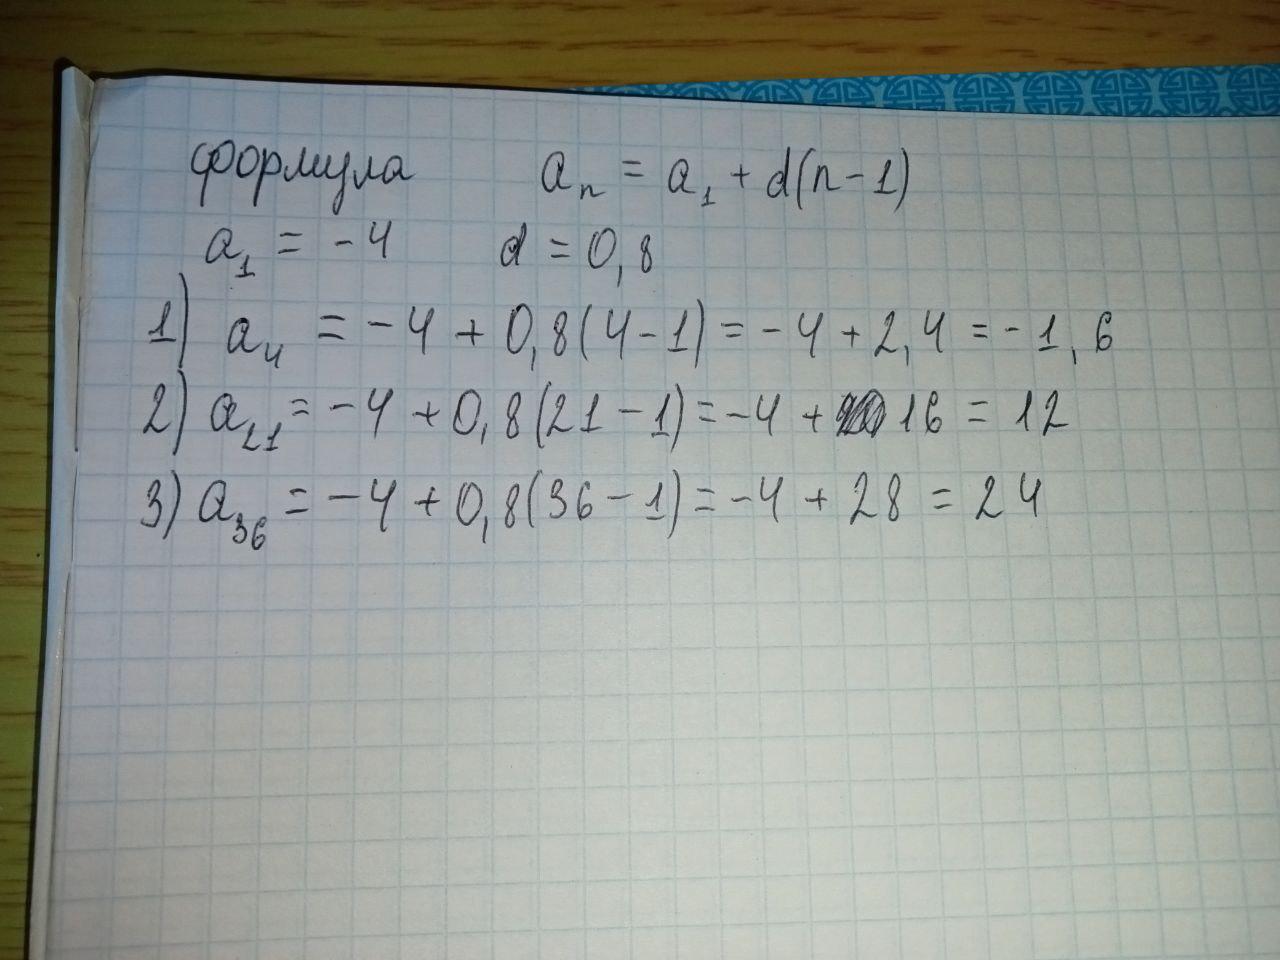 формула aₙ = a₁ + d(n-1)
a₁ = -4 d = 0,8
1) a₄ = -4 + 0,8(4-1) = -4 + 2,4 = -1,6
2) a₂₁ = -4 + 0,8(21-1) = -4 + 16 = 12
3) a₃₆ = -4 + 0,8(36-1) = -4 + 28 = 24